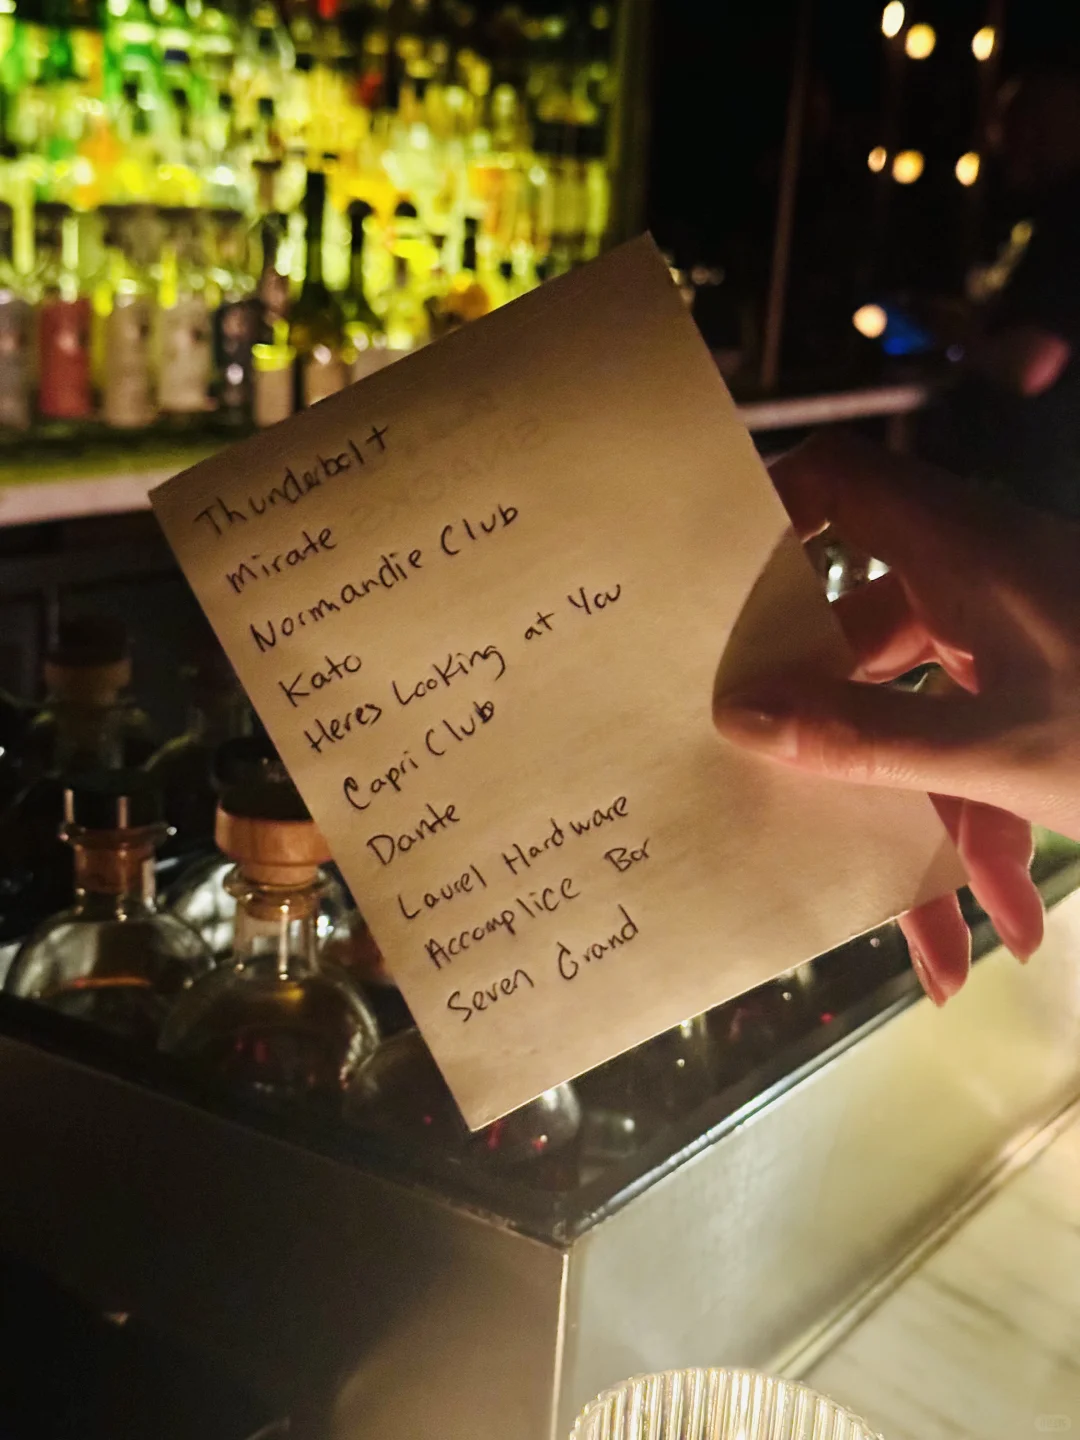 Thunderbolt
Mirate
Normandie Club
Kato
Heres Looking at You
Capri Club
Dante
Laurel Hardware
Accomplice Bar
Seven Grand